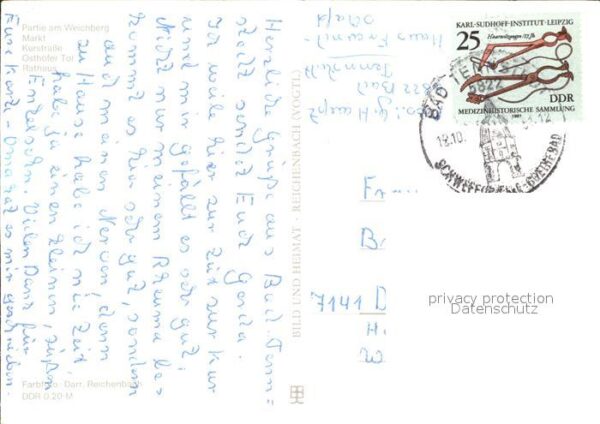 Partie am Weichberg
Markt
Kurstraße
Osthöfer Tor
Rathaus
Herzliche Grüße aus Bad-Tenn=
stedt sendet Euch Gerda.
Ich weile hier zur Zeit zur Kur
und mir gefällt es sehr gut,
nicht nur meinem Rheuma
kommt es hier sehr gut, sondern
auch meinen Nerven, denn
zu Hause habe ich nie Zeit,
habe ja einen kleinen, süßen
Enkelsohn. Vielen Dank für
Eure Karte - Oma hat es mir geschrieben.
Farbfoto: Darr, Reichenbach
DDR 0,20 M
BILD UND HEIMAT · REICHENBACH (VOGTL)
5822 Bad
Tennstedt
Haus
KARL-SUDHOFF-INSTITUT · LEIPZIG
25
DDR
MEDIZINHISTORISCHE SAMMLUNG
1981
BAD TENNST
5822
18.10.
-12
7141 D
H.
W
privacy protection
Datenschutz